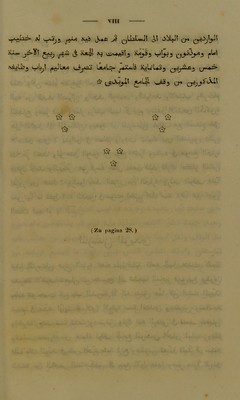 VIII
الواردين من البلاد الى السلطان ثم عمل فيه منبر ورتب له خطيب
امام ومؤذنون وبواب وقومة واقيمت به الجمعة فى شهر ربيع الآخر سنة
خمس وعشرين وثمانماية فاستمر جامعا تصرف معاليم ارباب وظايفه
المذكورين من وقف الجامع المويدى ۞
(Zu pagina 28.)